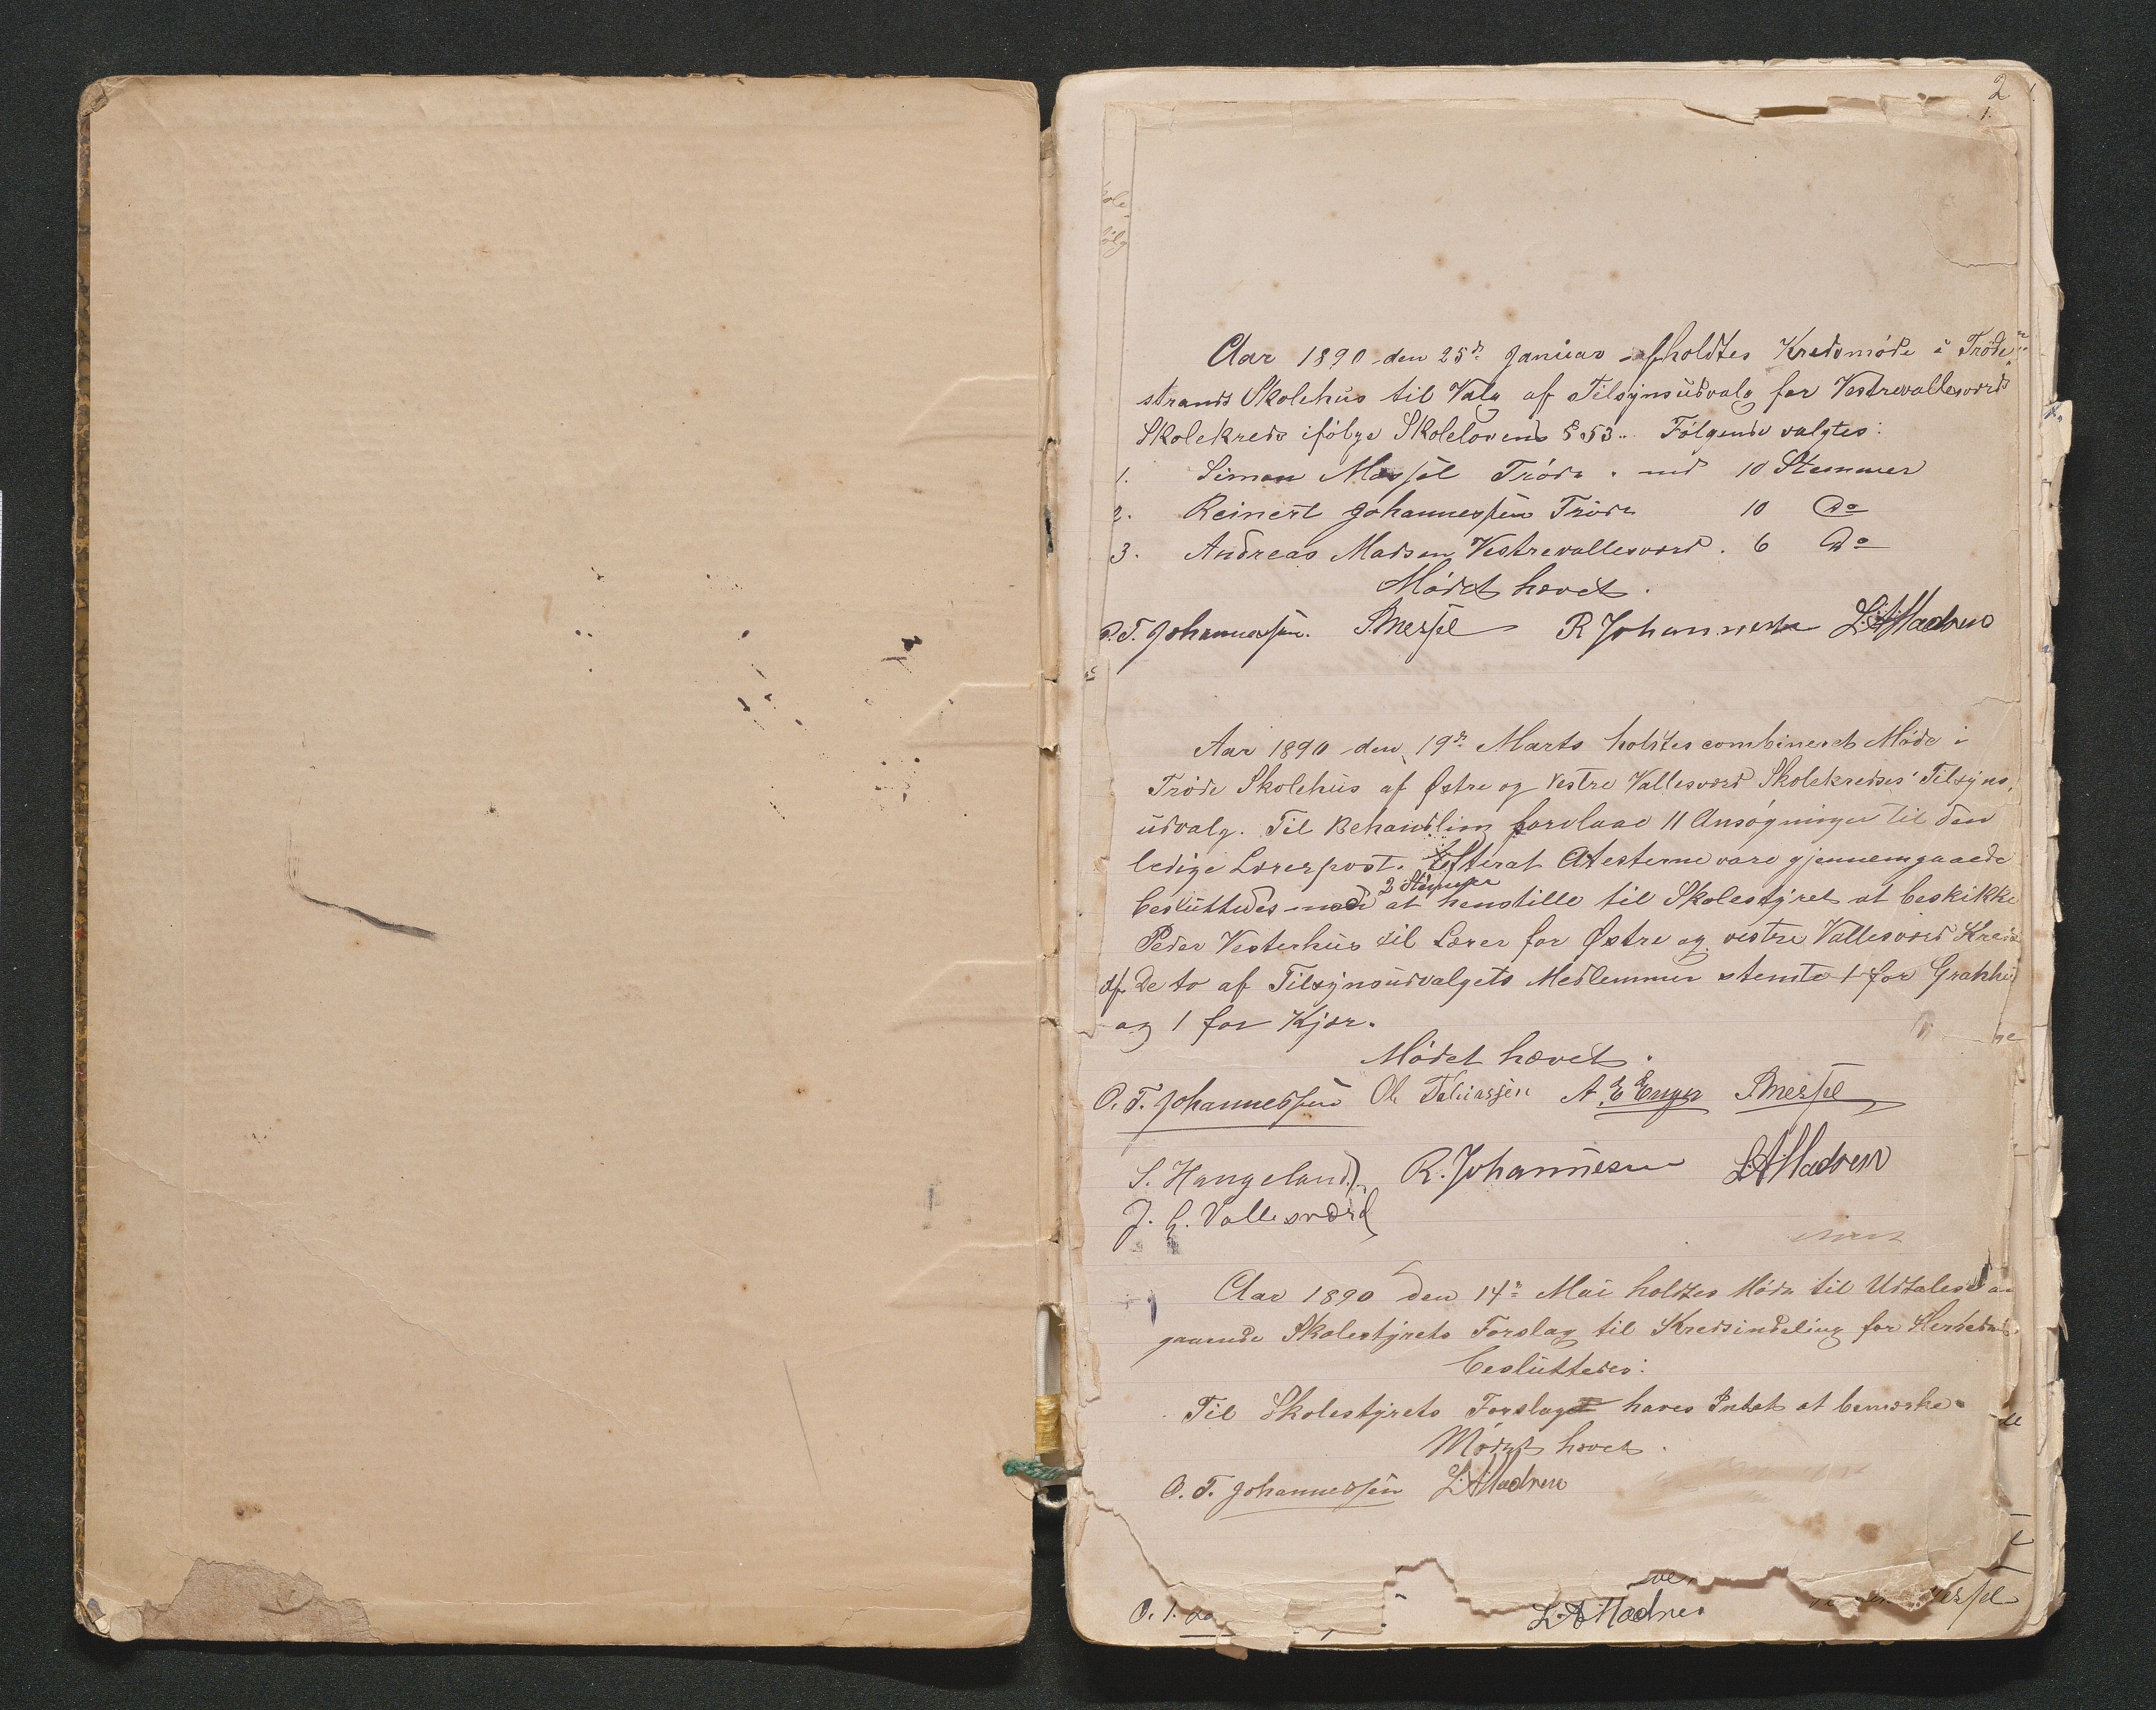 2
1.
Aar 1890 den 25de Januar afholdtes Kredsmøde i Trøde
strands Skolehus til Valg af Tilsynsudvalg for Vestrevallesværd
Skolekreds ifølge Skolelovens § 53. Følgende valgtes:
1. Simon Messel Trøde. med 10 Stemmer
2. Reinert Johannessen Trøde 10 Do
3. Andreas Madsen Vestrevallesværd. 6 Do
Mødet hævet.
O.T. Johannessen. S Messel R Johannesen L.A Madsen
Aar 1890 den 19de Marts holdtes combineret Møde i
Trøde Skolehus af Østre og Vestre Vallesværd Skolekredses Tilsyns,
udvalg. Til Behandling forelaae 11 Ansøgninger til den
ledige Lærerpost. Efterat Atesterne vare gjennemgaaede
2 Stemmer
besluttedes med at henstille til Skolestyret at beskikke
Peder Vesterhus til Lærer for Østre og vestre Vallesværd Kreds
Af De to af Tilsynsudvalgets Medlemmer stemte 1 for
og 1 for Kjær.
Mødet hævet.
O. T. Johannessen Ol. Tobiassen A. E Enger S Messel
S. Haugeland. R. Johannesen L.A Madsen
J. G. Vallesværd
Aar 1890 den 14de Mai holdtes Møde til Udtalelse an
gaaende Skolestyrets Forslag til Kredsindeling for Herredet.
besluttedes:
Til Skolestyrets Forslag haves Intet at bemærke.
Mødet hævet.
O. T. Johannessen L.A Madsen
L.A Madsen